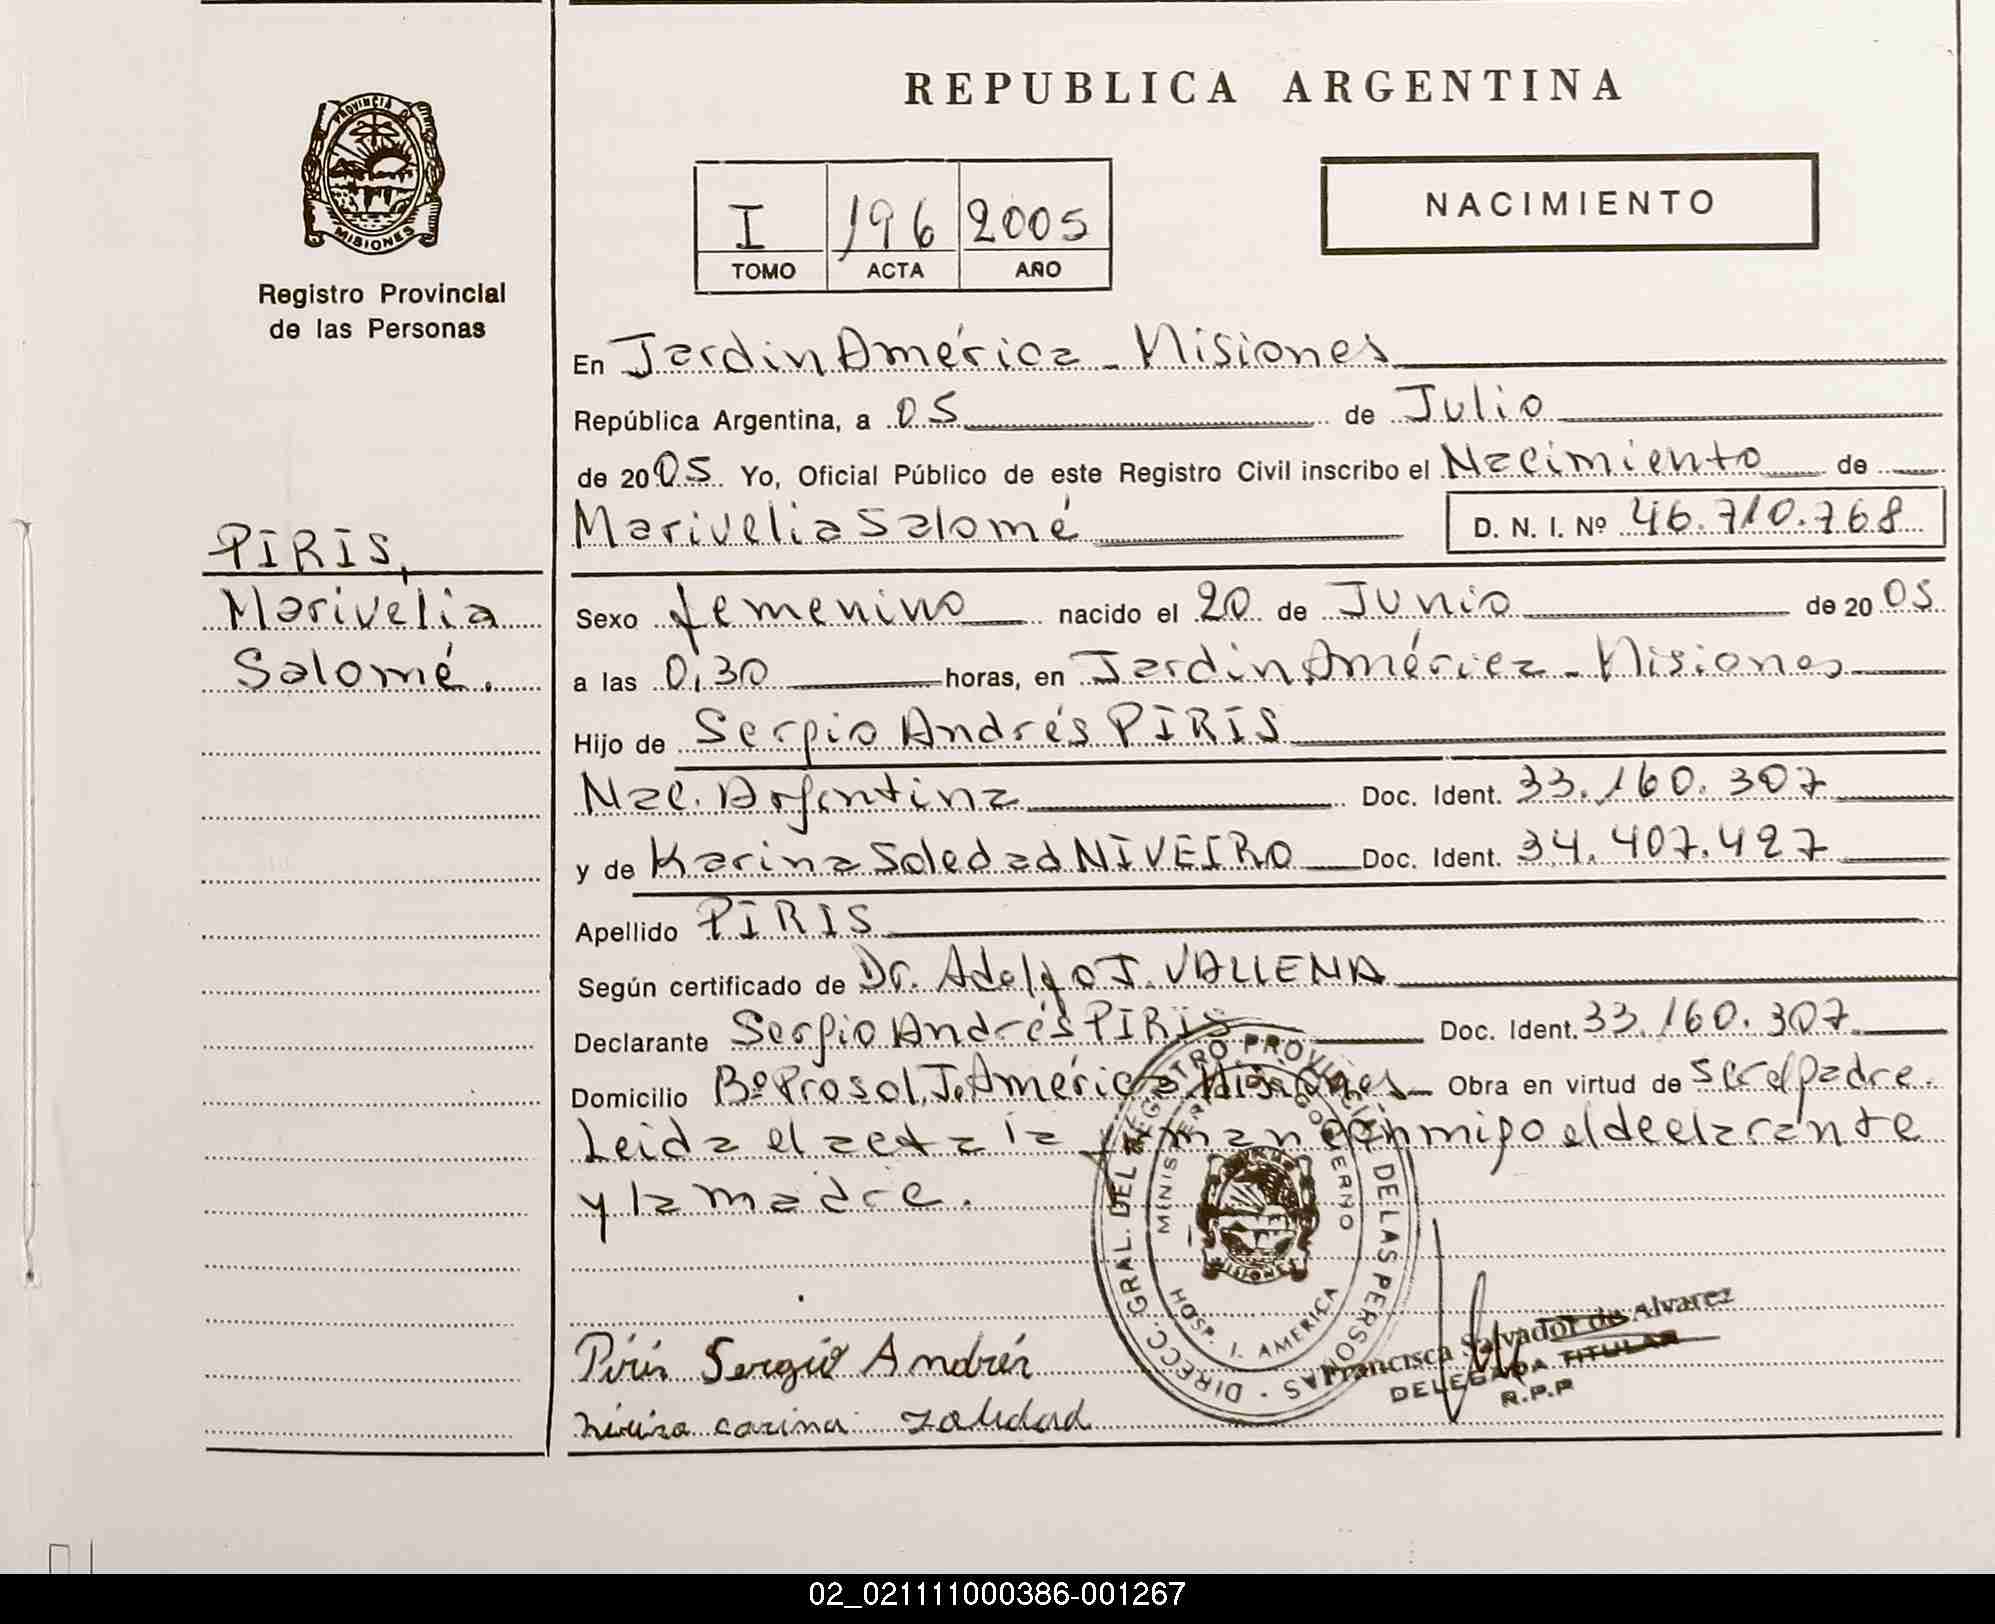 REPUBLICA ARGENTINA
PROVINCIA D
MISIONES
Registro Provincial
de las Personas
NACIMIENTO
I 196 2005
TOMO ACTA AÑO
En Jardin América - Misiones
República Argentina, a 05 de Julio
de 2005 Yo, Oficial Público de este Registro Civil inscribo el Nacimiento de
Marivelia Salomé D. N. I. Nº 46.710.768
PIRIS,
Marivelia
Salomé.
Sexo femenino nacido el 20 de Junio de 2005
a las 0,30 horas, en Jardin América - Misiones
Hijo de Sergio Andrés PIRIS
Nac. Argentina Doc. Ident. 33.160.307
y de Karina Soledad NIVEIRO Doc. Ident. 34.407.427
Apellido PIRIS
Según certificado de Dr. Adolfo J. VALLENA
Declarante Sergio Andrés PIRIS Doc. Ident. 33.160.307
Domicilio Bº Prosol, J. América Misiones Obra en virtud de ser el padre.
Leida el acta la firman conmigo el declarante
y la madre.
DIRECC. GRAL. DEL REGISTRO PROVINCIAL DE LAS PERSONAS
MINISTERIO GOBIERNO
MISIONES
HOSP. J. AMERICA
Piris Sergio Andrés
carina soledad
Francisca Salvador de Alvarez
DELEGADA TITULAR
R.P.P
02_021111000386-001267